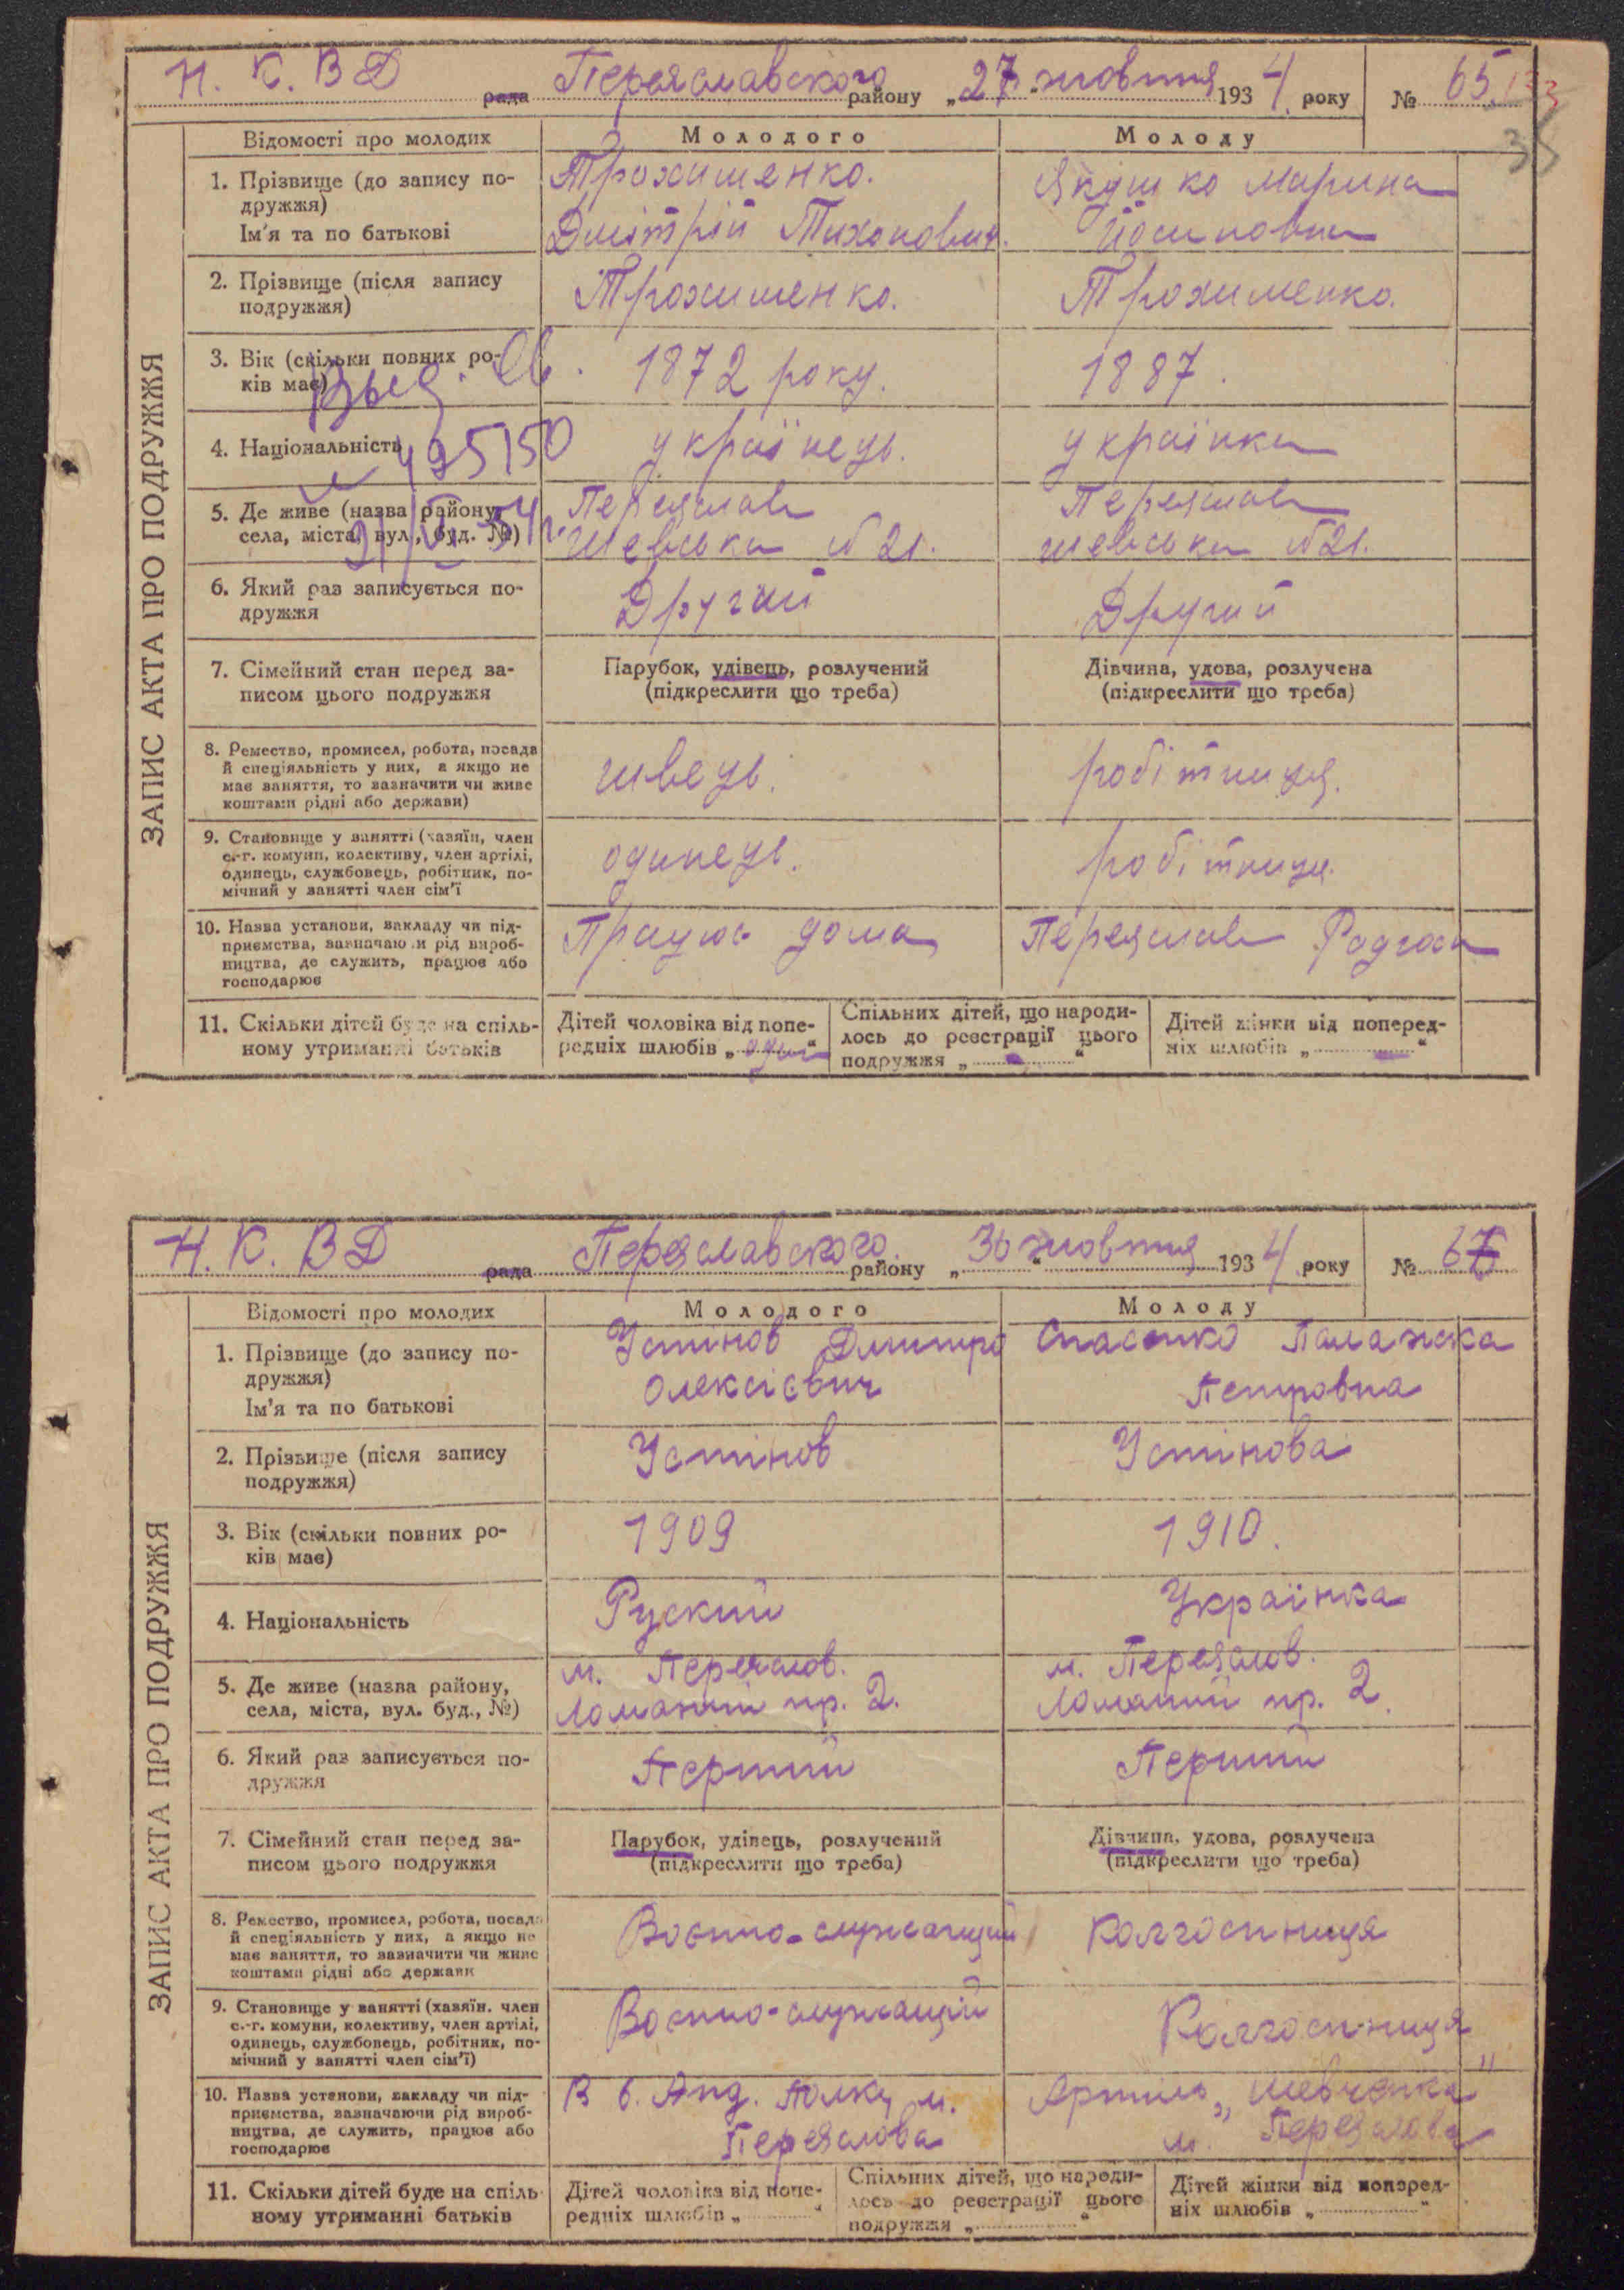 Н. К. В Д рада Переяславского району „27" жовтня 1934 року № 65
133
35
ЗАПИС АКТА ПРО ПОДРУЖЖЯ
Відомості про молодих
Молодого
Молоду
1. Прізвище (до запису по-
дружжя)
Ім'я та по батькові
Трохименко.
Дмітрій Тихонович.
Якушко Марина
Йосиповна
2. Прізвище (після запису
подружжя)
Трохименко.
Трохименко.
3. Вік (скільки повних ро-
ків має)
1872 року.
1887.
Выд. Св.
4. Національність
українець.
українка
495150
5. Де живе (назва району,
села, міста, вул., буд. №)
Переяслав
Шевська №21.
Переяслав
шевська №21.
21/VI 54 г.
6. Який раз записується по-
дружжя
Другий
Другий
7. Сімейний стан перед за-
писом цього подружжя
Парубок, удівець, розлучений
(підкреслити що треба)
Дівчина, удова, розлучена
(підкреслити що треба)
8. Ремество, промисел, робота, посада
й спеціяльність у них, а якщо не
має заняття, то зазначити чи живе
коштами рідні або держави)
швець.
робітниця.
9. Становище у занятті (хазяїн, член
с.-г. комуни, колективу, член артілі,
одинець, службовець, робітник, по-
мічний у занятті член сім'ї
одинець.
робітниця.
10. Назва установи, закладу чи під-
приємства, зазначаючи рід вироб-
ництва, де служить, працює або
господарює
Працює дома
Переяслав Радгосп
11. Скільки дітей буде на спіль-
ному утриманні батьків
Дітей чоловіка від попе-
редніх шлюбів „один"
Спільних дітей, що народи-
лось до реєстрації цього
подружжя „-"
Дітей жінки від поперед-
ніх шлюбів „-"
Н. К. В Д рада Переяславского району „30" жовтня 1934 року № 67
ЗАПИС АКТА ПРО ПОДРУЖЖЯ
Відомості про молодих
Молодого
Молоду
1. Прізвище (до запису по-
дружжя)
Ім'я та по батькові
Устінов Дмитро
Олексієвич
Спасенко Палажка
Петровна
2. Прізвище (після запису
подружжя)
Устінов
Устінова
3. Вік (скільки повних ро-
ків має)
1909
1910.
4. Національність
Руский
Українка
5. Де живе (назва району,
села, міста, вул. буд., №)
м. Переяслов.
Ломаний пр. 2.
м. Переяслов.
Ломаний пр. 2.
6. Який раз записується по-
дружжя
Перший
Перший
7. Сімейний стан перед за-
писом цього подружжя
Парубок, удівець, розлучений
(підкреслити що треба)
Дівчина, удова, розлучена
(підкреслити що треба)
8. Ремество, промисел, робота, посада
й спеціяльність у них, а якщо не
має заняття, то зазначити чи живе
коштами рідні або держави
Воєнно-служащий
Колгоспниця
9. Становище у занятті (хазяїн, член
с.-г. комуни, колективу, член артілі,
одинець, службовець, робітник, по-
мічний у занятті член сім'ї)
Воєнно-служащій
Колгоспниця
10. Назва установи, закладу чи під-
приємства, зазначаючи рід вироб-
ництва, де служить, працює або
господарює
В 6. Полку м.
Переяслова
Артиль „Шевченка"
м. Переяслова
11. Скільки дітей буде на спіль-
ному утриманні батьків
Дітей чоловіка від попе-
редніх шлюбів „"
Спільних дітей, що народи-
лось до реєстрації цього
подружжя „"
Дітей жінки від поперед-
ніх шлюбів „"